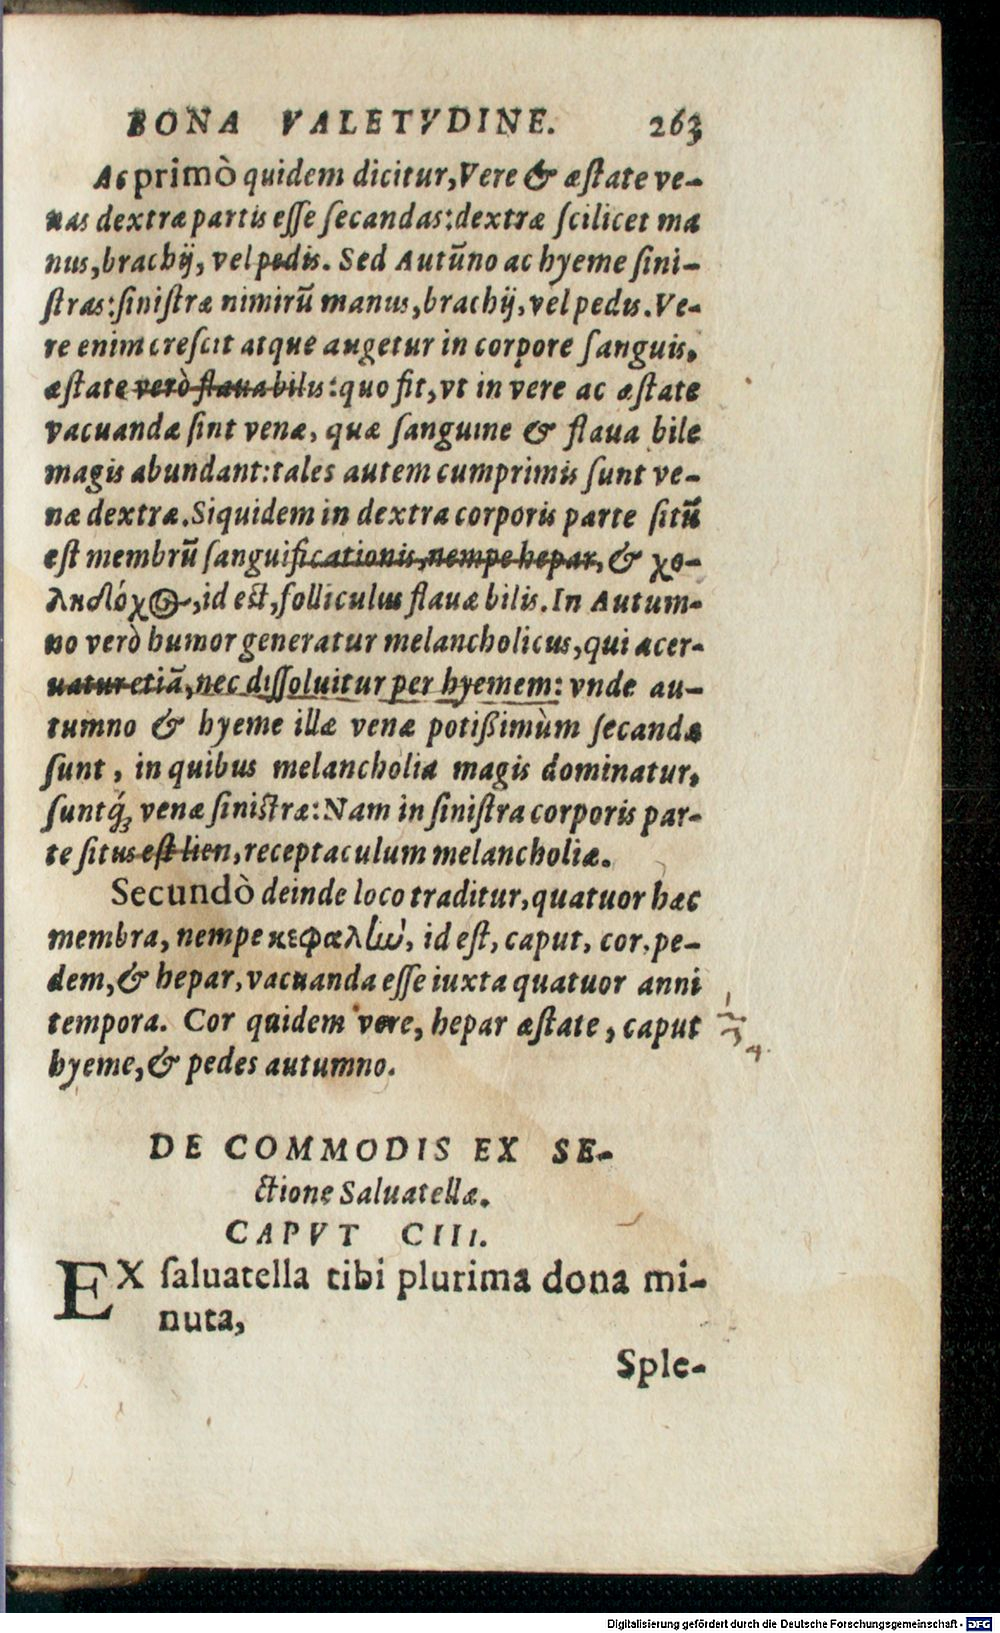 BONA VALETVDINE. 263
Ac primò quidem dicitur, Vere & æſtate ve-
nas dextræ partis eſſe ſecandas: dextræ ſcilicet ma
nus, brachij, vel pedis. Sed Autũno ac hyeme ſini-
ſtras: ſiniſtræ nimirũ manus, brachij, vel pedis. Ve-
re enim creſcit atque augetur in corpore ſanguis,
æſtate verò flaua bilis: quo fit, vt in vere ac æſtate
vacuandæ ſint venæ, quæ ſanguine & flaua bile
magis abundant: tales autem cumprimis ſunt ve-
næ dextræ. Siquidem in dextra corporis parte ſitũ
eſt membrũ ſanguificationis, nempe hepar, & χο-
ληδόχος, id eſt, folliculus flauæ bilis. In Autum-
no verò humor generatur melancholicus, qui acer-
uatur etiã, nec diſſoluitur per hyemem: vnde au-
tumno & hyeme illæ venæ potißimùm ſecandæ
ſunt, in quibus melancholia magis dominatur,
ſuntq́ꝫ venæ ſiniſtræ: Nam in ſiniſtra corporis par-
te ſitus eſt lien, receptaculum melancholiæ.
Secundò deinde loco traditur, quatuor hæc
membra, nempe κεφαλὼ, id eſt, caput, cor, pe-
dem, & hepar, vacuanda eſſe iuxta quatuor anni
tempora. Cor quidem vere, hepar æſtate, caput
hyeme, & pedes autumno.
DE COMMODIS EX SE-
ctione Saluatellæ.
CAPVT CIII.
EX ſaluatella tibi plurima dona mi-
nuta,
Sple-
Digitalisierung gefördert durch die Deutsche Forschungsgemeinschaft - DFG